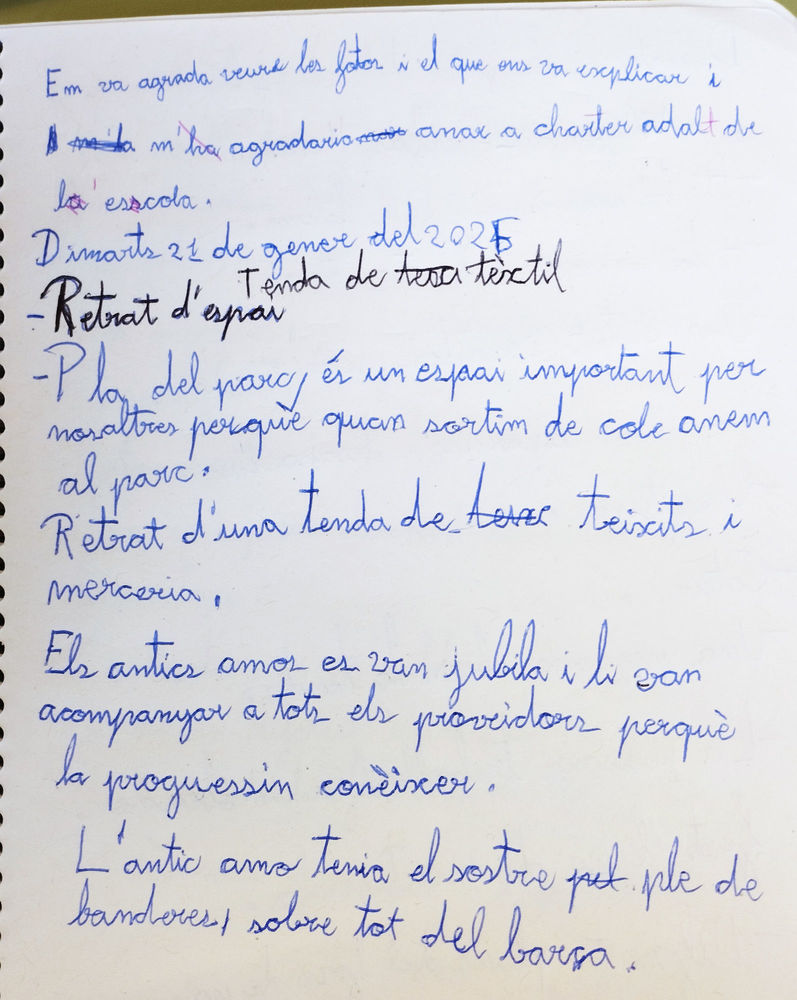 Em va agrada veure les fotos i el que ens va explicar i
m'agradaria anar a charter adalt de
la escola.
Dimarts 21 de gener del 2025
Tenda de tèxtil
- Retrat d'espai
- Pla del parc, és un espai important per
nosaltres perquè quan sortim de cole anem
al parc.
Retrat d'una tenda de teixits i
merceria.
Els antics amos es van jubila i li van
acompanyar a tots els proveidors perquè
la proguessin conèixer.
L'antic amo tenia el sostre ple de
banderes, sobre tot del barça.